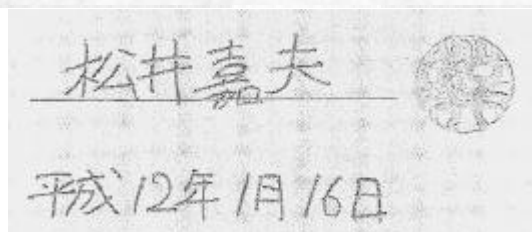 松井嘉夫
平成12年1月16日